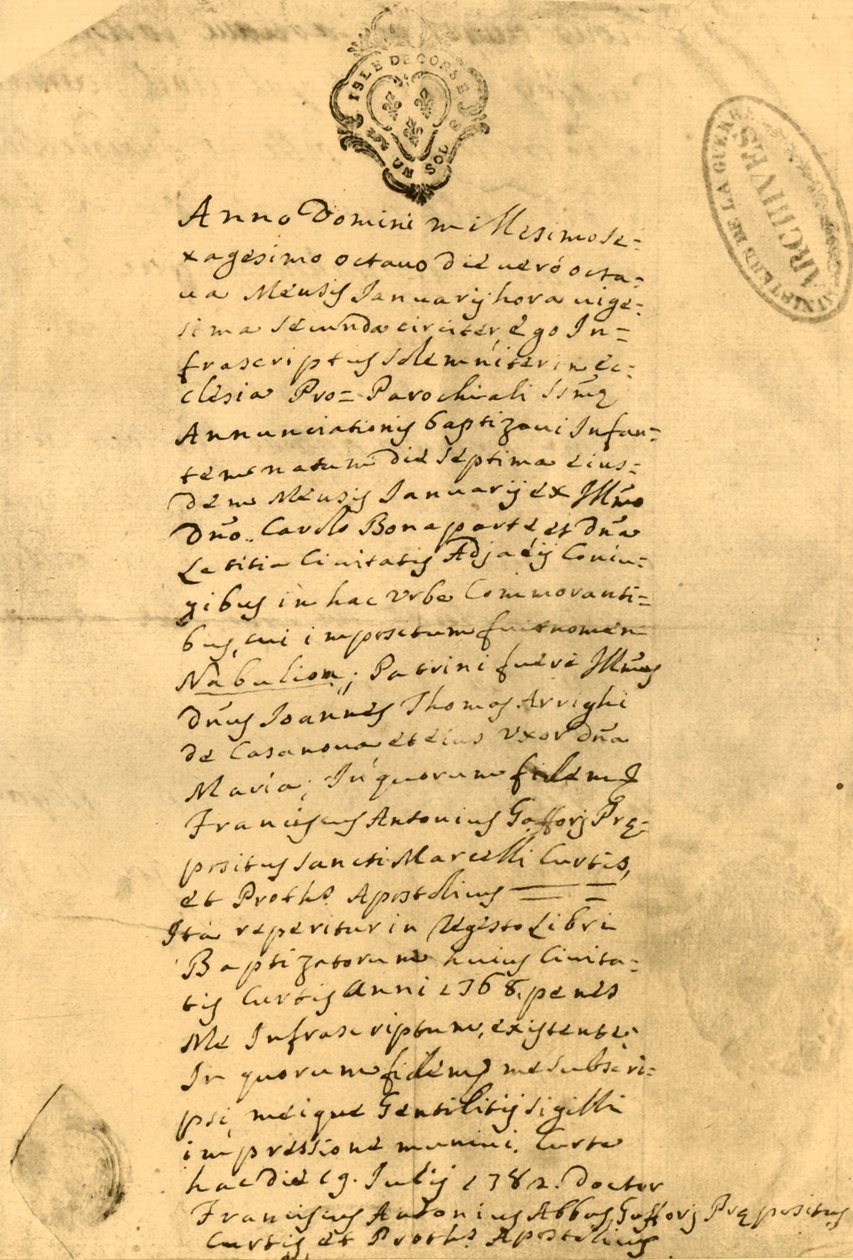 ISLE DE CORSE
UN SOL
MINISTERE DE LA GUERRE
ARCHIVES
Anno Domini millesimo se=
xagesimo octavo die verò octa=
va Mensis Januarij hora vige=
sima secunda circiter, ego In=
frascriptus solemniter in ec=
clesia Pro= Parochiali SSmæ
Annunciationis baptizavi Infan=
tem natum die septima eius=
dem Mensis Januarij ex Illmo
Dño. Carolo Bonaparte, et Dña
Letitia Civitatis Adjacij Coniu=
gibus in hac Urbe Commoranti=
bus, cui impositum fuit nomen
Nabulion; Patrini fuere Illmus
Dñus Joannes Thomas Arrighi
de Casanova et eius Uxor Dña
Maria; In quorum fidem
Franciscus Antonius Gafforj Præ=
positus Sancti Marcelli Curtis,
et Proths Apostolicus
Ita reperitur in Regesto Libri
Baptizatorum huius Civita=
tis Curtis Anni 1768. penes
Me Infrascriptum, existente.
In quorum fidem me subscri=
psi, meique Gentilitij sigilli
impressione munivi. Curte
hac die 19. Julij 1782. Doctor
Franciscus Antonius Abbas, Gafforj Præpositus
Curtis, et Proths Apostolicus